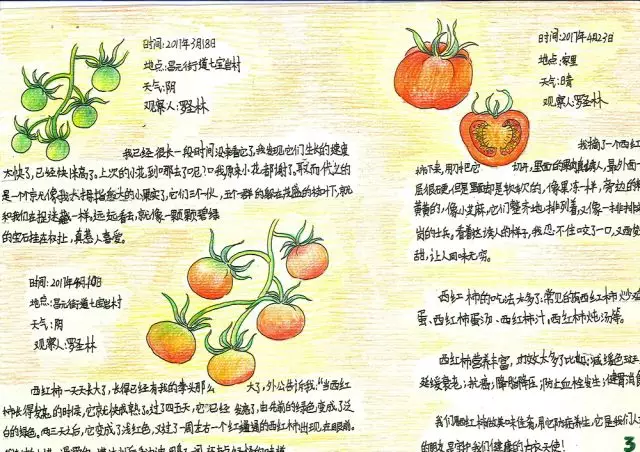 时间:2017年3月18日
地点:昌元街道七宝岩村
天气:阴
观察人:罗圣林
我已经很长一段时间没来看它了,我发现它们生长的速度
太快了,已经快体高了。上次的小花到哪去了呢?口我原来小花都谢了,取而代之的
是一个个像我大拇指盖大的小果实了。它们三个一伙,五个一群的躲在茂盛的枝叶下,就
和我们在捉迷藏一样。远远看去,就像一颗颗碧绿
的宝石挂在枝上,真惹人喜爱。
时间:2017年4月10日
地点:昌元街道七宝岩村
天气:阴
观察人:罗圣林
西红柿一天天长大了,长得已经有我的拳头那么大了,外公告诉我,“当西红
柿长得发亮的时候,它就快成熟了。过了四五天,它已经发亮了,由先前的绿色变成了泛
白的绿色。两三天后,它变成了浅红色,又过了一周左右一个红通通的西红柿出现在眼前。
时间:2017年4月23日
地点:家里
天气:晴
观察人:罗圣林
我摘了一个西红
柿下来,用刀把它切开,里面的果实诱人,最外面一
层很硬,但里面却是软软的,像果冻一样,旁边的
黄黄的,像小芝麻,它们整齐地排列着,又像一排排站
岗的士兵。看着这诱人的样子,我忍不住咬了一口,又酸
甜,让人回味无穷。
西红柿的吃法太多了:常见的有西红柿炒鸡
蛋、西红柿蛋汤、西红柿汁,西红柿炖汤等。
西红柿营养丰富,功效太多了比如:减缓色斑、
延缓衰老,抗癌,降脂降压,防止血栓发生,健胃消食
我们用西红柿做美味佳肴,用它防病养生,它是我们人
的朋友,是守护我们健康的大衣天使!
3